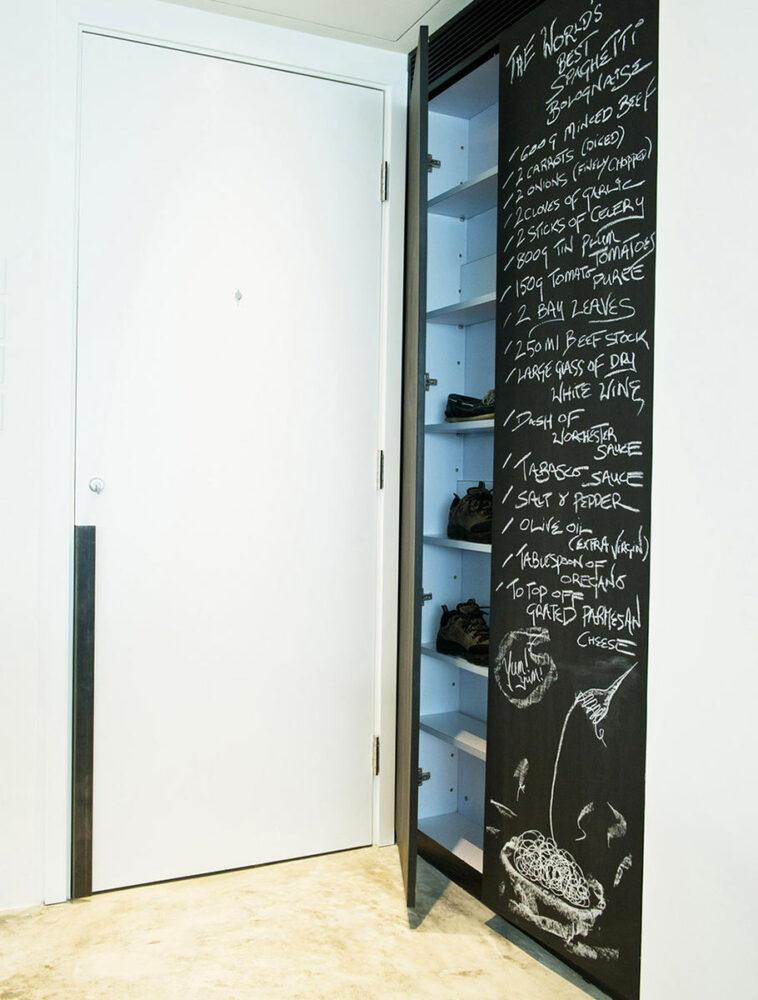 THE WORLD'S
BEST
SPAGHETTI
BOLOGNAISE
/ 600g MINCED BEEF
/ 2 CARROTS (DICED)
/ 2 ONIONS (FINELY CHOPPED)
/ 2 CLOVES OF GARLIC
/ 2 STICKS OF CELERY
/ 800g TIN PLUM
TOMATOES
/ 150g TOMATO PUREE
/ 2 BAY LEAVES
/ 250 Ml BEEF STOCK
/ LARGE GLASS OF DRY
WHITE WINE
/ DASH OF
WORCHESTER
SAUCE
/ TABASCO SAUCE
/ SALT & PEPPER
/ OLIVE OIL
(EXTRA VIRGIN)
/ TABLESPOON OF
OREGANO
/ TO TOP OFF
GRATED PARMESAN
CHEESE
Yum!
yum!